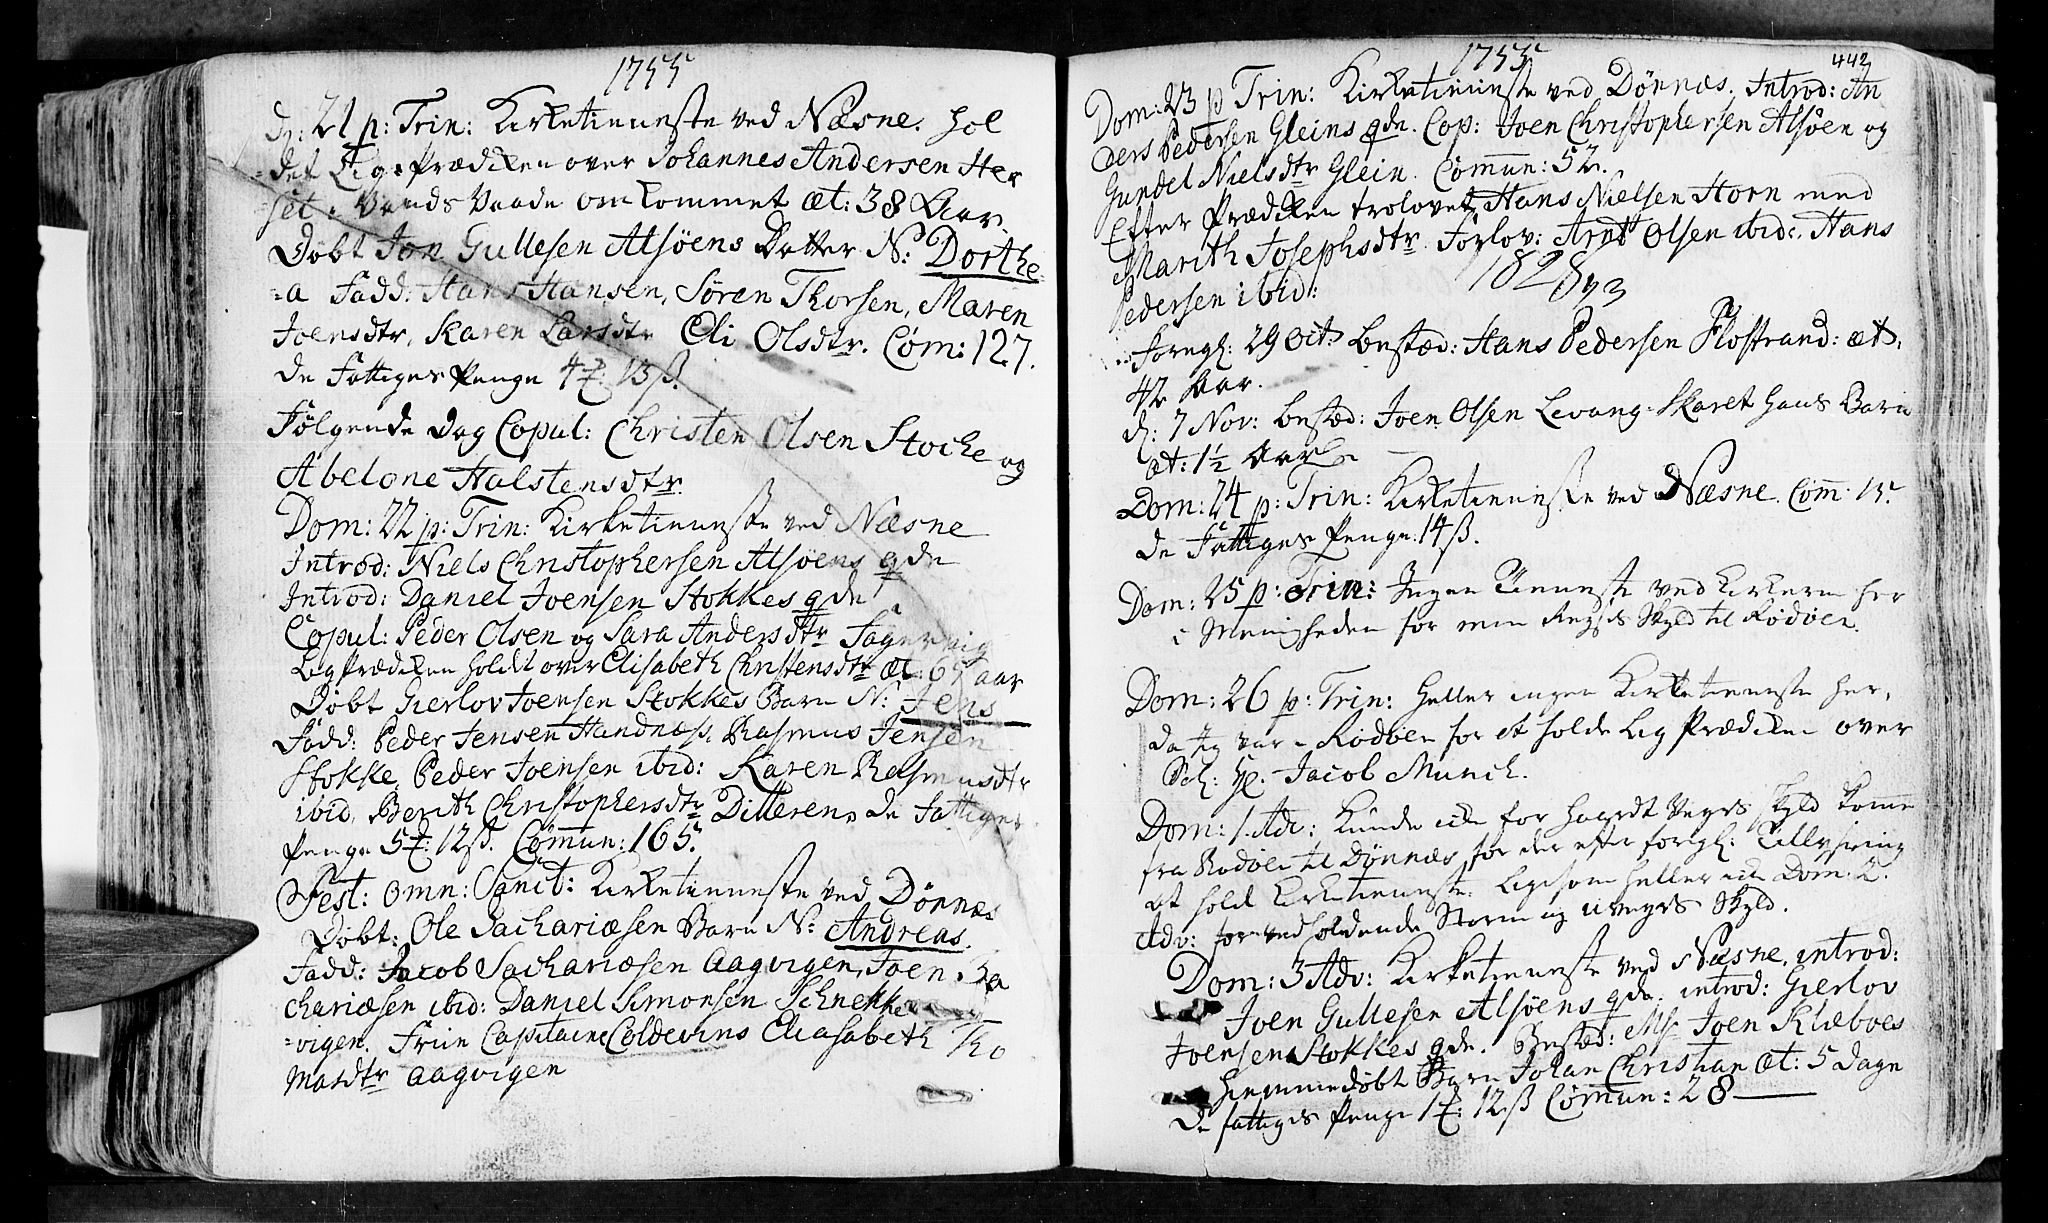 1755
D: 21 p: Trin: Kirketienneste ved Næsne. hol
det Lig-Prædiken over Johannes Andersen Her
set i Vands Vaade omkommet æt: 38 Aar.
Døbt Jon Gullesen Alsøens Datter N: Dorthe-
=a Fadd: Hans Hansen, Søren Thorsen, Maren
Joensdtr, Karen Larsdtr Eli Olsdtr. Com: 127.
de Fattiges Penge 13 ß.
Følgende Dag Copul: Christen Olsen Stocke og
Abelone Halstensdtr
Dom: 22 p: Trin: Kirketienneste ved Næsne
Introd: Niels Christophersen Alsøens qde
Introd: Daniel Joensen Stokkes qde
Copul: Peder Olsen og Sara Andersdtr Fagervig
LigPrædiken holdt over Elisabeth Christensdtr æt: 67 aar
Døbt Gierlov Joensen Stokkes Barn N: Jens
Fadd: Peder Jensen Handnæs, Rasmus Jensen
Stokke, Peder Joensen ibid: Karen Rasmusdtr
ibid, Berith Christophersdtr Ditteren, de Fattiges
Penge 12 ß. Commun: 165.
Fest: omn: Sanct: Kirketienneste ved Dønnæs
Døbt: Ole Sachariæsen Barn N: Andreas.
Fadd: Jacob Sachariæsen Aagvigen, Joen Sa
chariæsen ibid: Daniel Simonsen Schnekke
=vigen. Frue Capitaine Coldevins Eliasabeth Tho
masdtr aagvigen
1755
442
Dom: 23 p Trin: Kirketienneste ved Dønnæs. Introd: An
ders Pedersen Gleins qde. Cop: Joen Christophersen Alsøen og
Gundel Nielsdtr Glein. Commun: 52.
Efter Prædiken trolovet Hans Nielsen Horn med
Marith Josephsdtr. Forlov: Arnt Olsen ibid:, Hans
Pedersen ibid:
Forrgl: 29 Oct: bested: Hans Pedersen Flostrand: æt.
42 Aar.
d: 7 Nov: bestæd: Joen Olsen Levang-Skaret hans Barn
æt: 1½ Aar
Dom: 24 p: Trin: Kirketienneste ved Næsne. Com: 15
de Fattiges Penge: 14 ß.
Dom: 25 p: Trin: Ingen Tienneste ved kirkerne her
i Menigheden for min Reyses Skyld til Rødøen.
Dom: 26 p: Trin: heller ingen Kirketienneste her,
da jeg var i Rødøen for at holde Lig Prædiken over
Sal: Hr. Jacob Munch.
Dom: 1. Adv: kunde ey for haardt Veyrs skyld komme
fra Rødøen til Dønnæs, for der efter forrgl: Tillysning
at holde Kirketienneste. Ligesom heller ey Dom: 2.
Adv: for vedholdende Storm og uveyrs Skyld.
Dom: 3 Adv: Kirketienneste ved Næsne, introd:
Joen Gullesen Alsøens qde. introd: Gierlov
Joensen Stokkes qde. Bestæd: Joen Klæboes
hiemmedøbt Barn Johan Christian æt: 5 dage
de fattiges Penge 12 ß Commun: 28